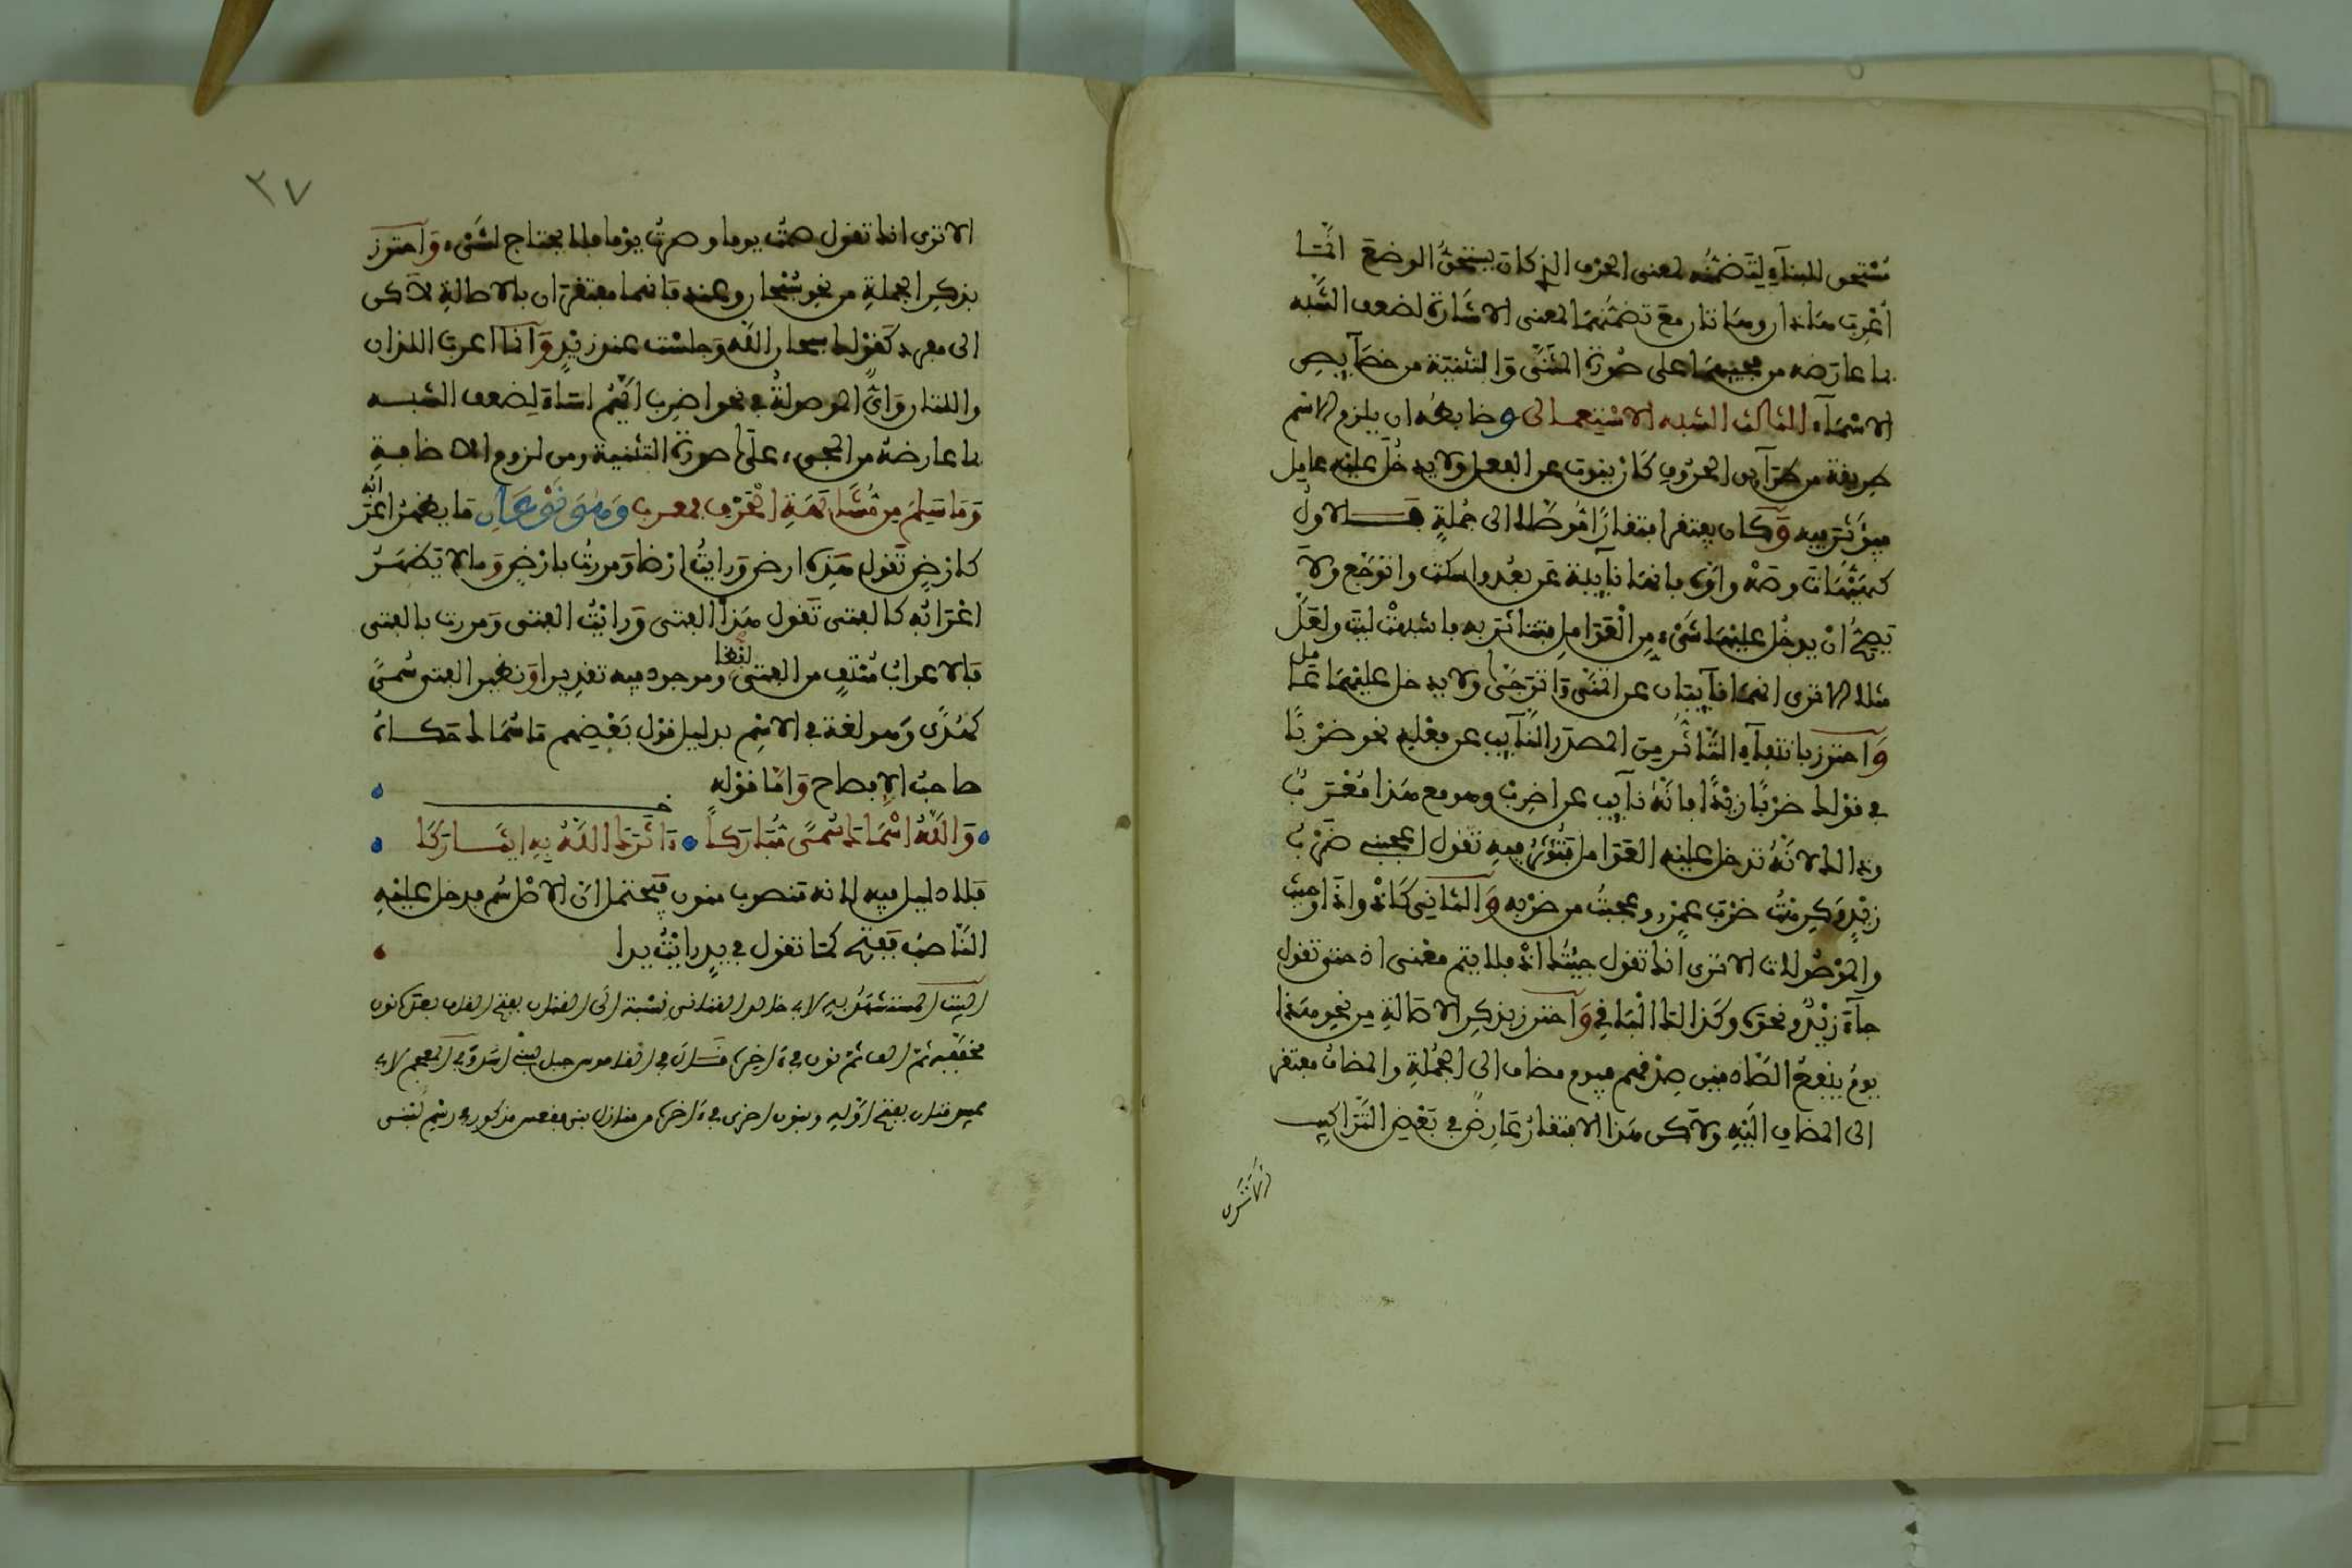 مُسْتحق للبنآءِ لِتَضمُّنِه لمعنى الحرْفِ الذي كان يستحقُّ الوضعَ وانّما
أُعْرِبَ هَاذان وهَاتان مع تضمُّنِهمَا لمعنى الاشَارة لضعفِ الشَّبَه
بما عارَضه من مجيئِهمَا على صُورة المُثنَّى وَالتثنيَة من خصَآيصِ
الاسْمَآء الثالث الشبه الاسْتِعمالى وضابطُه ان يلزم الاسْم
طريقة من طَرَآيق الحرُوفِ كَان ينوبَ عن الفعل ولا يدخُل عليْه عامِل
فيؤثّر فيه وَكَان يفتقر افتقارًا مُؤصَّلا الى جُملةٍ فالاولُ
كهيْهَات وصَهْ واوَّه فانهَا نآيبة عَن بعُد واسكت واتوَجَّع ولا
يَصِحُّ انْ يدخُل عليْهَا شَىْء مِن الْعَوَامل فتتأثر به فاشبهتْ ليت ولعَلَّ
مثلا الا ترى انهمَا نآيبتان عن اتمَنَّى وَاتَرَجَّى ولا يدخل عليْهمَا عَامل
وَاحترز بانتفآءِ التَّاثُّر مِن المصدر النَّآيب عن فعْلِه نحو ضرْبًا
في قوْلك ضرْبًا زيْدًا فانَّهُ نآيب عن اضرِبْ وهو مع هَذا مُعْرَبٌ
وذالك لانَّهُ تدخل عليْه العَوَامل فتُؤثّرُ فيهِ تقول اعجبنى ضَرْبُ
زيْدٍ وَكرِهْتُ ضرْبَ عمْرٍو وعجبْتُ من ضرْبه وَالثانِى كَاذْ واذَا وحيث
والموْصُولات الا ترى انك تقول جيْتُك اذْ فلا يتم معْنى اذ حتى تقول
جآءَ زيْدٌ ونحوَه وكذالك الْبَاقي وَاحترز بذكرِ الاصَالةِ مِن نحوِ هَذا
يومُ ينفعُ الصَّادقين صِدْقهم فيوم مضاف الى الجُملةِ والمضافُ مفتقر
الى المضافِ اليْهِ ولاكن هَذا الافتقارُ عَارِضٌ في بَعْضِ التَّرَاكيب
الا ترى
الا ترى انك تقول صمْت يوما وصرْت يوْما فلا يحتاج لشَىْء وَاحترز
بذكرِ الجملةِ من نحو سُبْحان وعند فانهما مفتقرَان بالاصالةِ لاكن
الى مفرد كَقوْلك سبحان اللَّه وجلسْت عند زيْدٍ وَانما اعرب اللذان
واللتان وَاىّ الموصولةُ في نحو اضرِب ايُّهُم اسَآءَ لِضعف الشبه
بما عارضهُ من المجىء علَى صورة التثنية ومن لزوم الاضافةِ
وَمَا سَلِمَ مِن مُشَابَهَةِ الْحَرْفِ فمعرب وَهْوَ نَوْعَانِ مَا يظهرُ اعرَابُه
كارْضٍ تَقول هَذِه ارض وَرايتُ ارْضا وَمررتُ بارْضٍ وَما لا يَظهَرُ
اعْرَابُه كالفتى تَقول هَذَا الفتى وَرايْتُ الفتى وَمررت بالفتى
فالاعرابُ مُنْتفٍ من الفتى لفْظا وموجود فيه تقدِيرا وَنظير الفتى سُمىً
كهُدًى وَهو لغة في الاسْمِ بدليل قوْل بَعْضِهم مَا سُمَاك حَكاهُ
صاحبُ الإفصاح وَامّا قوْله
وَاللَّهُ اسْمَاكَ سُمىً مُبَارَكاً ءَاثَرَكَ اللَّهُ بِهِ ايثَارَكَا
فَلا دليل فيه لانه منصوب منون فيَحتمل انّ الاصْل سُم فدخل عليْهِ
النَّاصبُ فَفتح كما تقول في يدٍ رايْتُ يدا
البيت المستشهَدُ به لابى خالد القنانى نسْبة الى القنان بفتح القاف بعدَها نون
مخففة ثم الف ثم نون في ءاخِرِه قَالَ في القاموس جبل لبنى اسَد وفى المعجم لابى
بفتح اوَّلِهِ وبنون اخرى في ءاخره